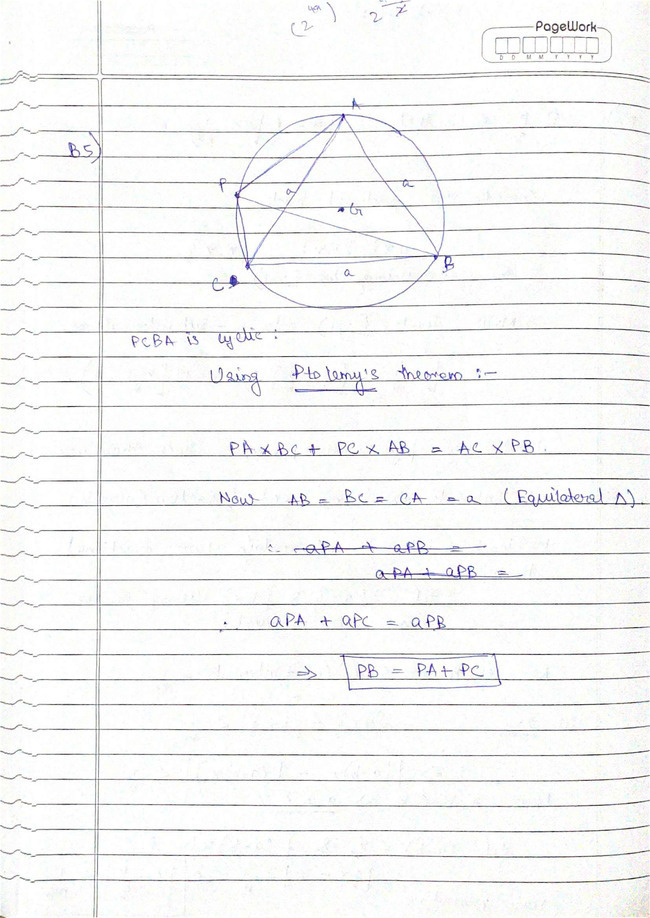 (2^49) 2
PageWork
D D M M Y Y Y Y
B5)
A
P
a
a
G
C
B
a
PCBA is cyclic :
Using Ptolemy's theorem :-
PA × BC + PC × AB = AC × PB.
Now AB = BC = CA = a (Equilateral Δ).
∴ aPA + aPB =
aPA + aPB =
∴ aPA + aPC = aPB
⇒ PB = PA + PC